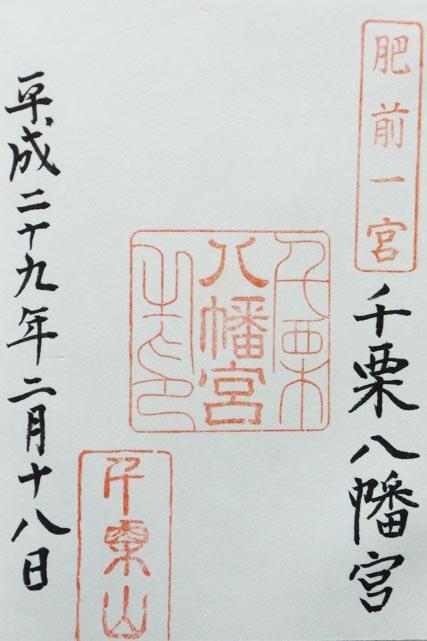 肥前一宮
千栗八幡宮
千栗
八幡宮
之印
千栗山
平成二十九年二月十八日